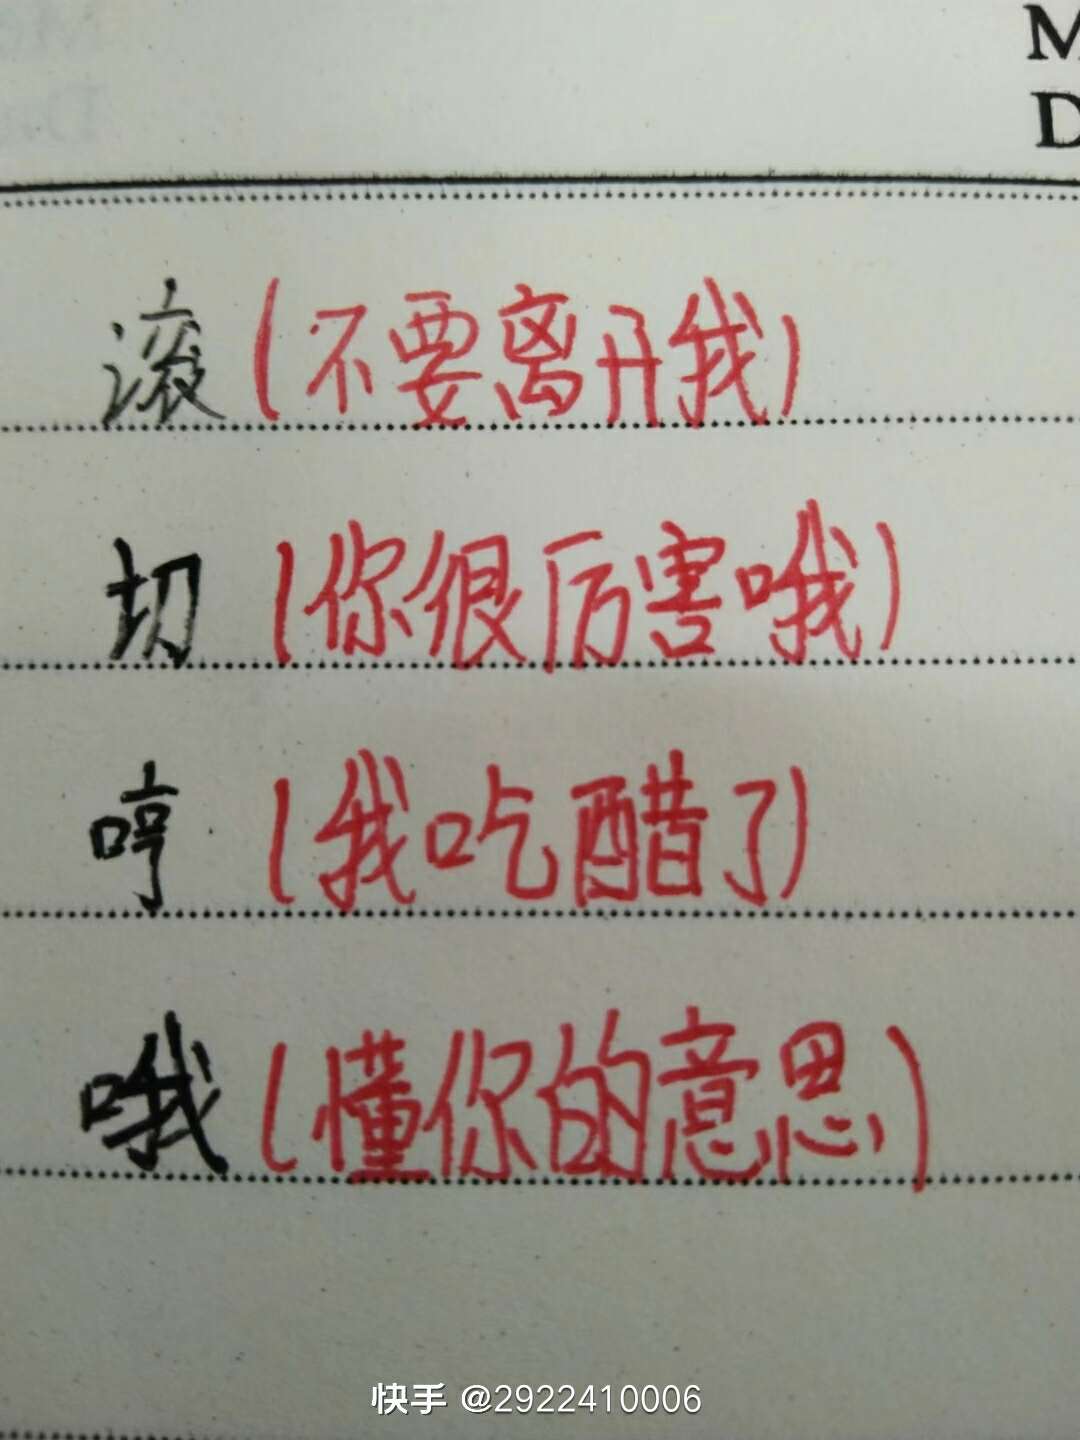 M
D
滚(不要离开我)
切(你很厉害哦)
哼(我吃醋了)
哦(懂你的意思)
快手 @2922410006